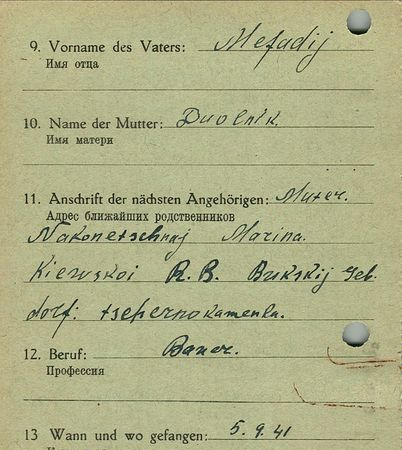 9. Vorname des Vaters: Mefadij
Имя отца
10. Name der Mutter: Duolnik.
Имя матери
11. Anschrift der nächsten Angehörigen: Muter.
Адрес ближайших родственников
Nakonetschnaj Marina.
Kiewskoi R.B. Bukskij Geb.
dorf: tschernokamenka.
12. Beruf: Bauer.
Профессия
13 Wann und wo gefangen: 5.9.41